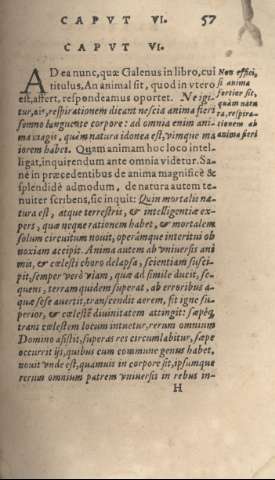 CAPVT VI. 57
CAPVT VI.
AD ea nunc, quæ Galenus in libro, cui
titulus. An animal sit, quod in vtero
est, affert, respondeamus oportet. Ne igi-
tur, ait, respirationem dicant nescia anima fieri
somno languente corpore: ad omnia enim ani-
ma viget, quàm natura idonea est, vimque ma
iorem habet. Quam animam hoc loco intel-
ligat, inquirendum ante omnia videtur. Sa-
nè in præcedentibus de anima magnificè &
splendidè admodum, de natura autem te-
nuiter scribens, sic inquit: Quin mortalis na-
tura est, atque terrestris, & intelligentiæ ex-
pers, quæ neque rationem habet, & mortalem
solum circuitum nouit, operámque interitui ob
noxiam accipit. Anima autem ab vniuersi ani
mis, & cælesti choro delapsa, scientiam susci-
pit, semper verò viam, quæ ad simile ducit, se-
quens, terram quidem superat, ab erroribus a-
quæ sese auertit, transcendit aerem, fit igne su-
perior, & cælestē diuinitatem attingit: sæpeq́;
trans cælestem locum intuetur, rerum omnium
Domino assistit, superas res circumlabitur, sæpe
occurrit ijs, quibus cum commune genus habet,
nouit vnde est, quamuis in corpore sit, ipsumque
rerum omnium patrem vniuersis in rebus in-
H
Non effici,
si anima
fortior sit,
quàm natu
ra, respira-
tionem ab
anima fieri